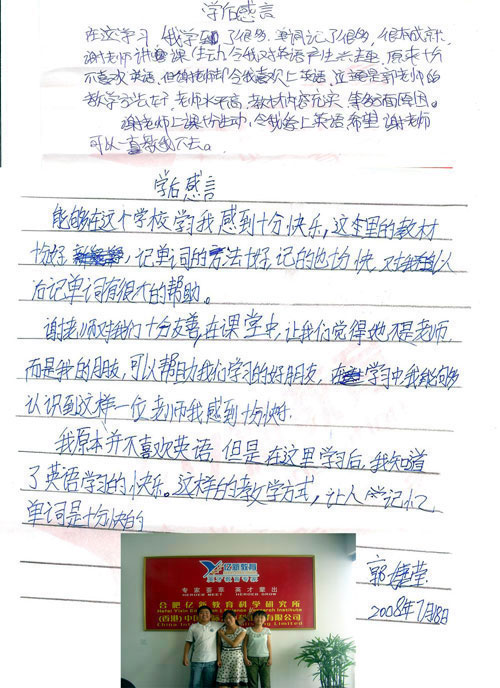 学后感言
在这学习我学到了很多,单词记了很多,很有成就.
谢老师讲课生动,令我对英语产生兴趣,原来十分
不喜欢英语,但谢老师却令我喜欢上英语,
教学方法好,老师水平高,教材内容充实,等多方面原因。
谢老师上课生动,令我爱上英语,希望谢老师
可以一直教我下去。
学后感言
能够在这个学校学习我感到十分快乐,这本里的教材
十分好,记单词的方法十分好,记的也十分快,以
后记单词有很大的帮助。
谢老师对我们十分友善,在课堂中,让我们觉得她不是老师,
而是我的朋友,可以帮助我们学习的好朋友,学习中我能够
认识到这样一位老师我感到十分快乐.
我原本并不喜欢英语,但是在这里学习后,我知道
了英语学习的快乐。这样的教学方式,让人学记忆
单词是十分快的
2008年7月18日
亿新教育
专家荟萃 英才辈出
合肥亿新教育科学研究所